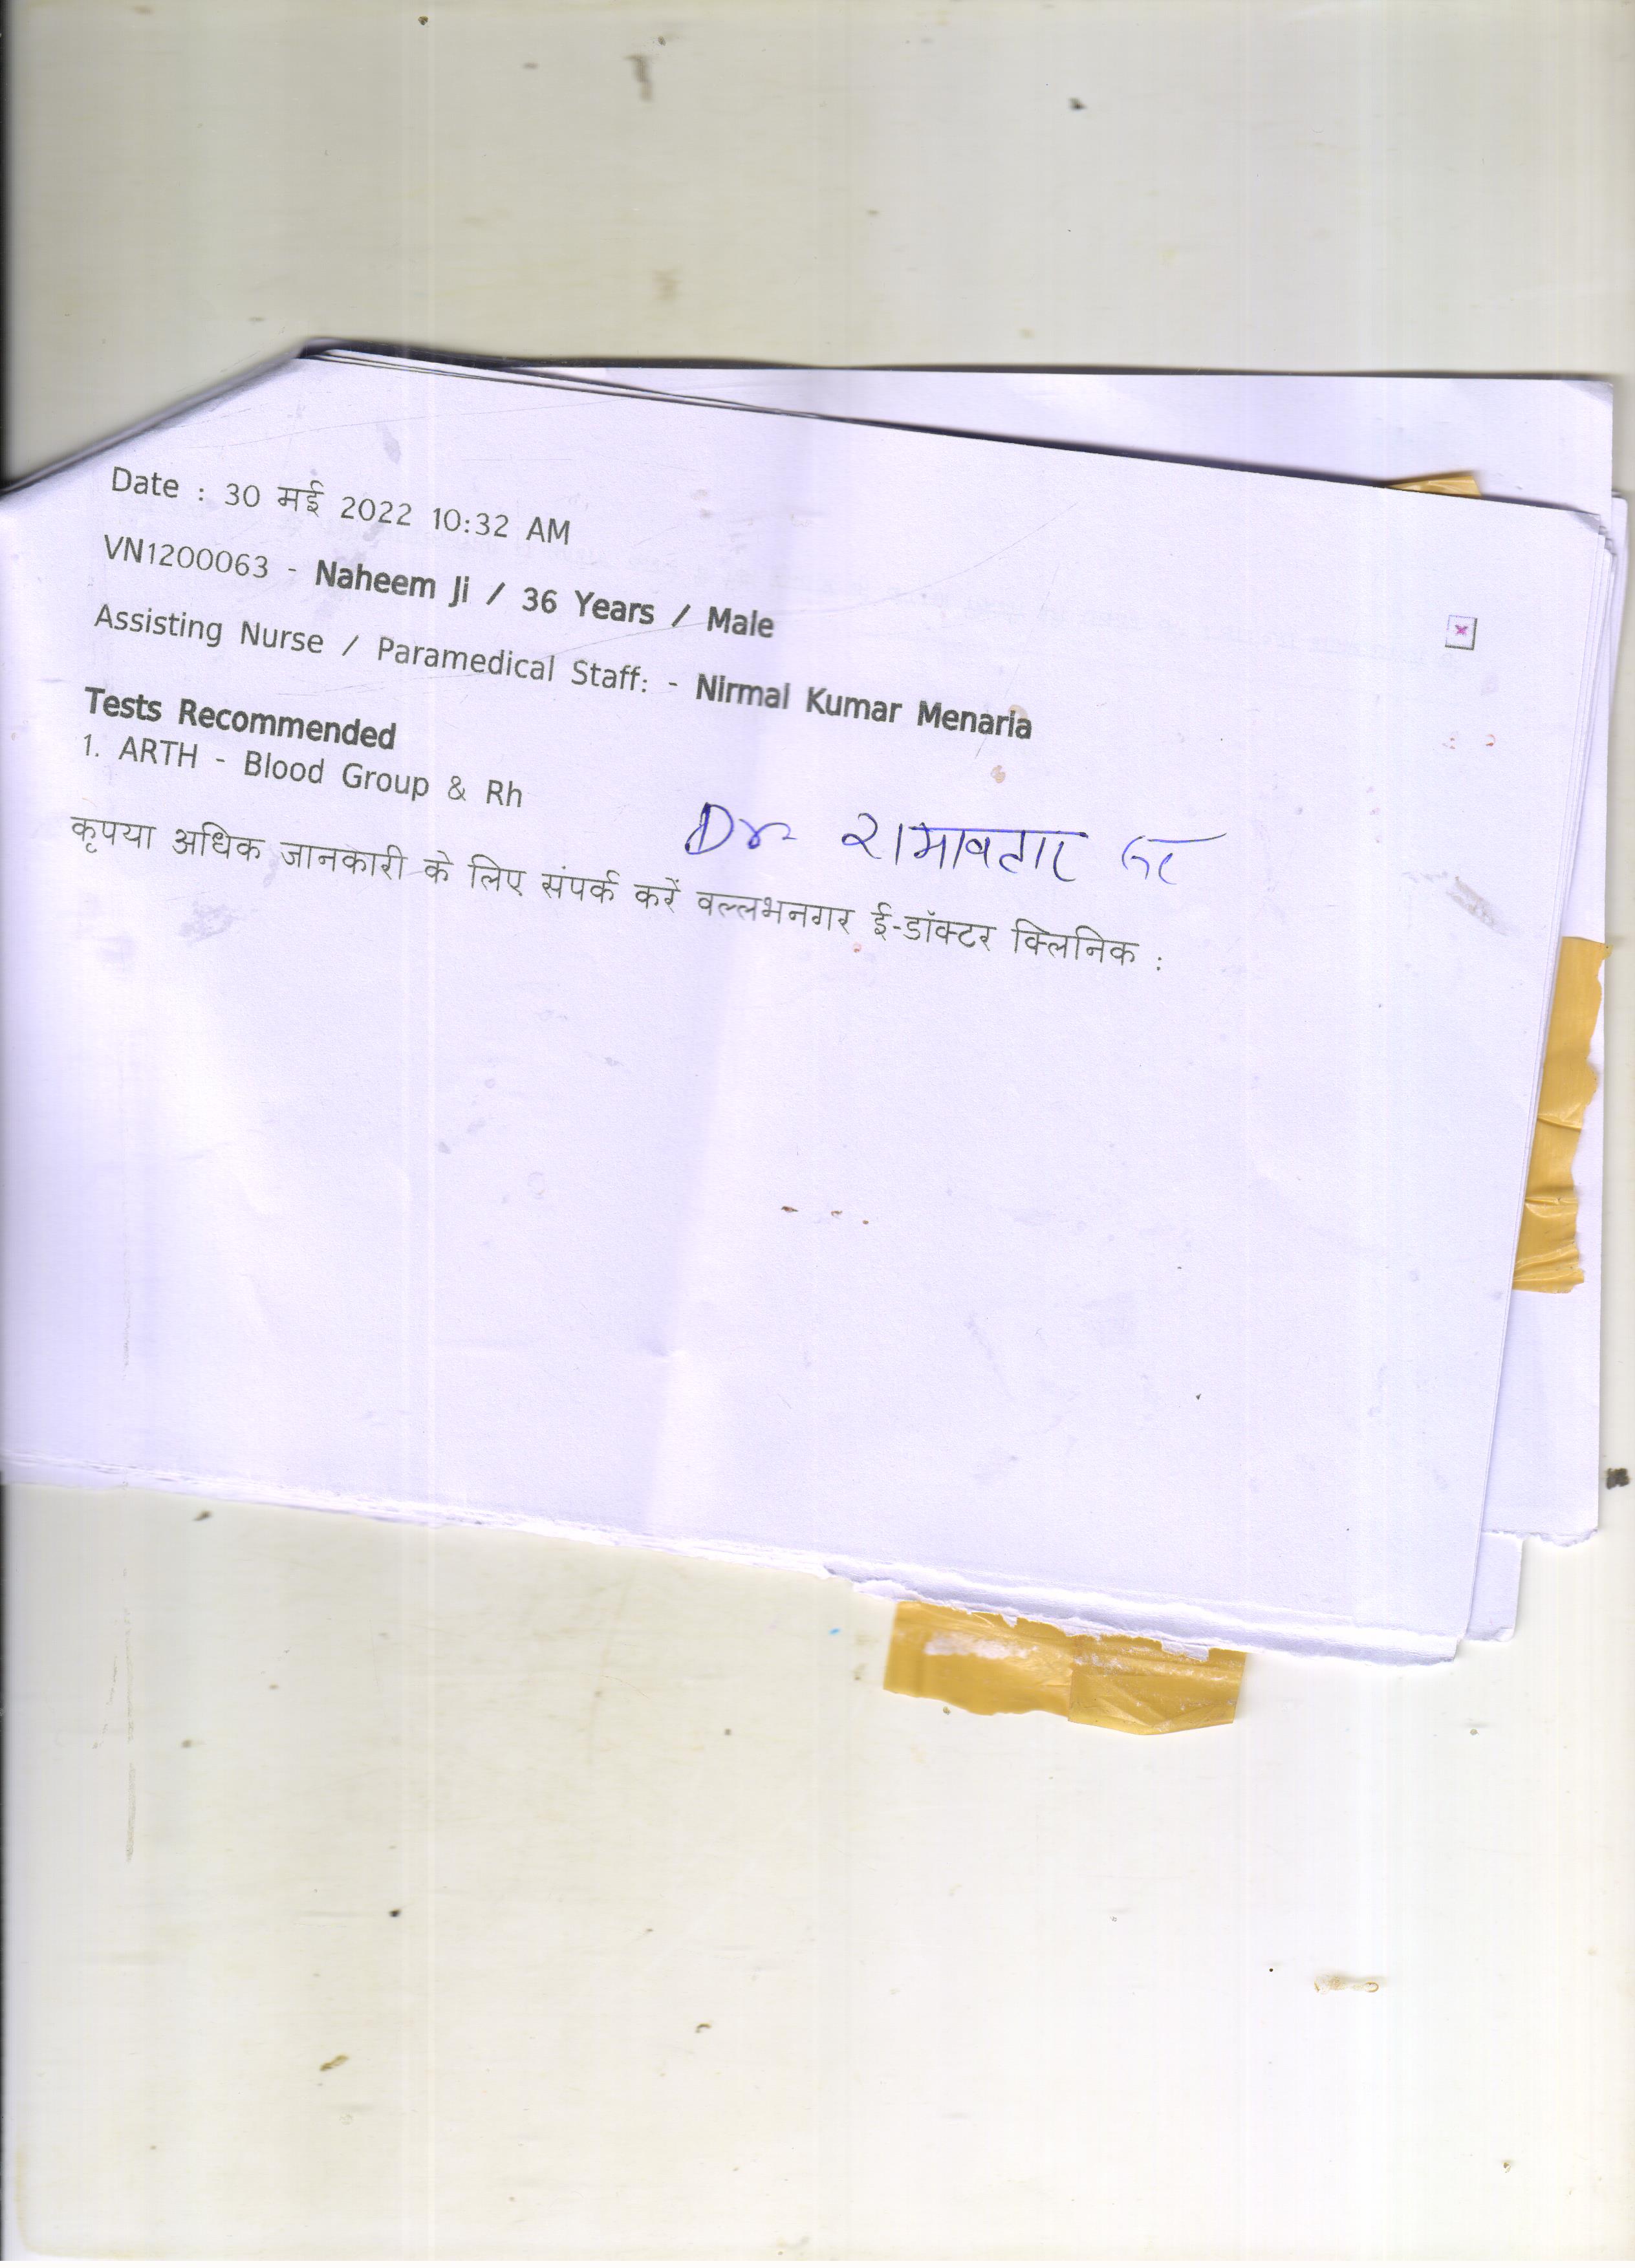 Date : 30 मई 2022 10:32 AM
VN1200063 - Naheem Ji / 36 Years / Male
Assisting Nurse / Paramedical Staff: - Nirmal Kumar Menaria
Tests Recommended
1. ARTH - Blood Group & Rh
Dr रामावतार
कृपया अधिक जानकारी के लिए संपर्क करें वल्लभनगर ई-डॉक्टर क्लिनिक :